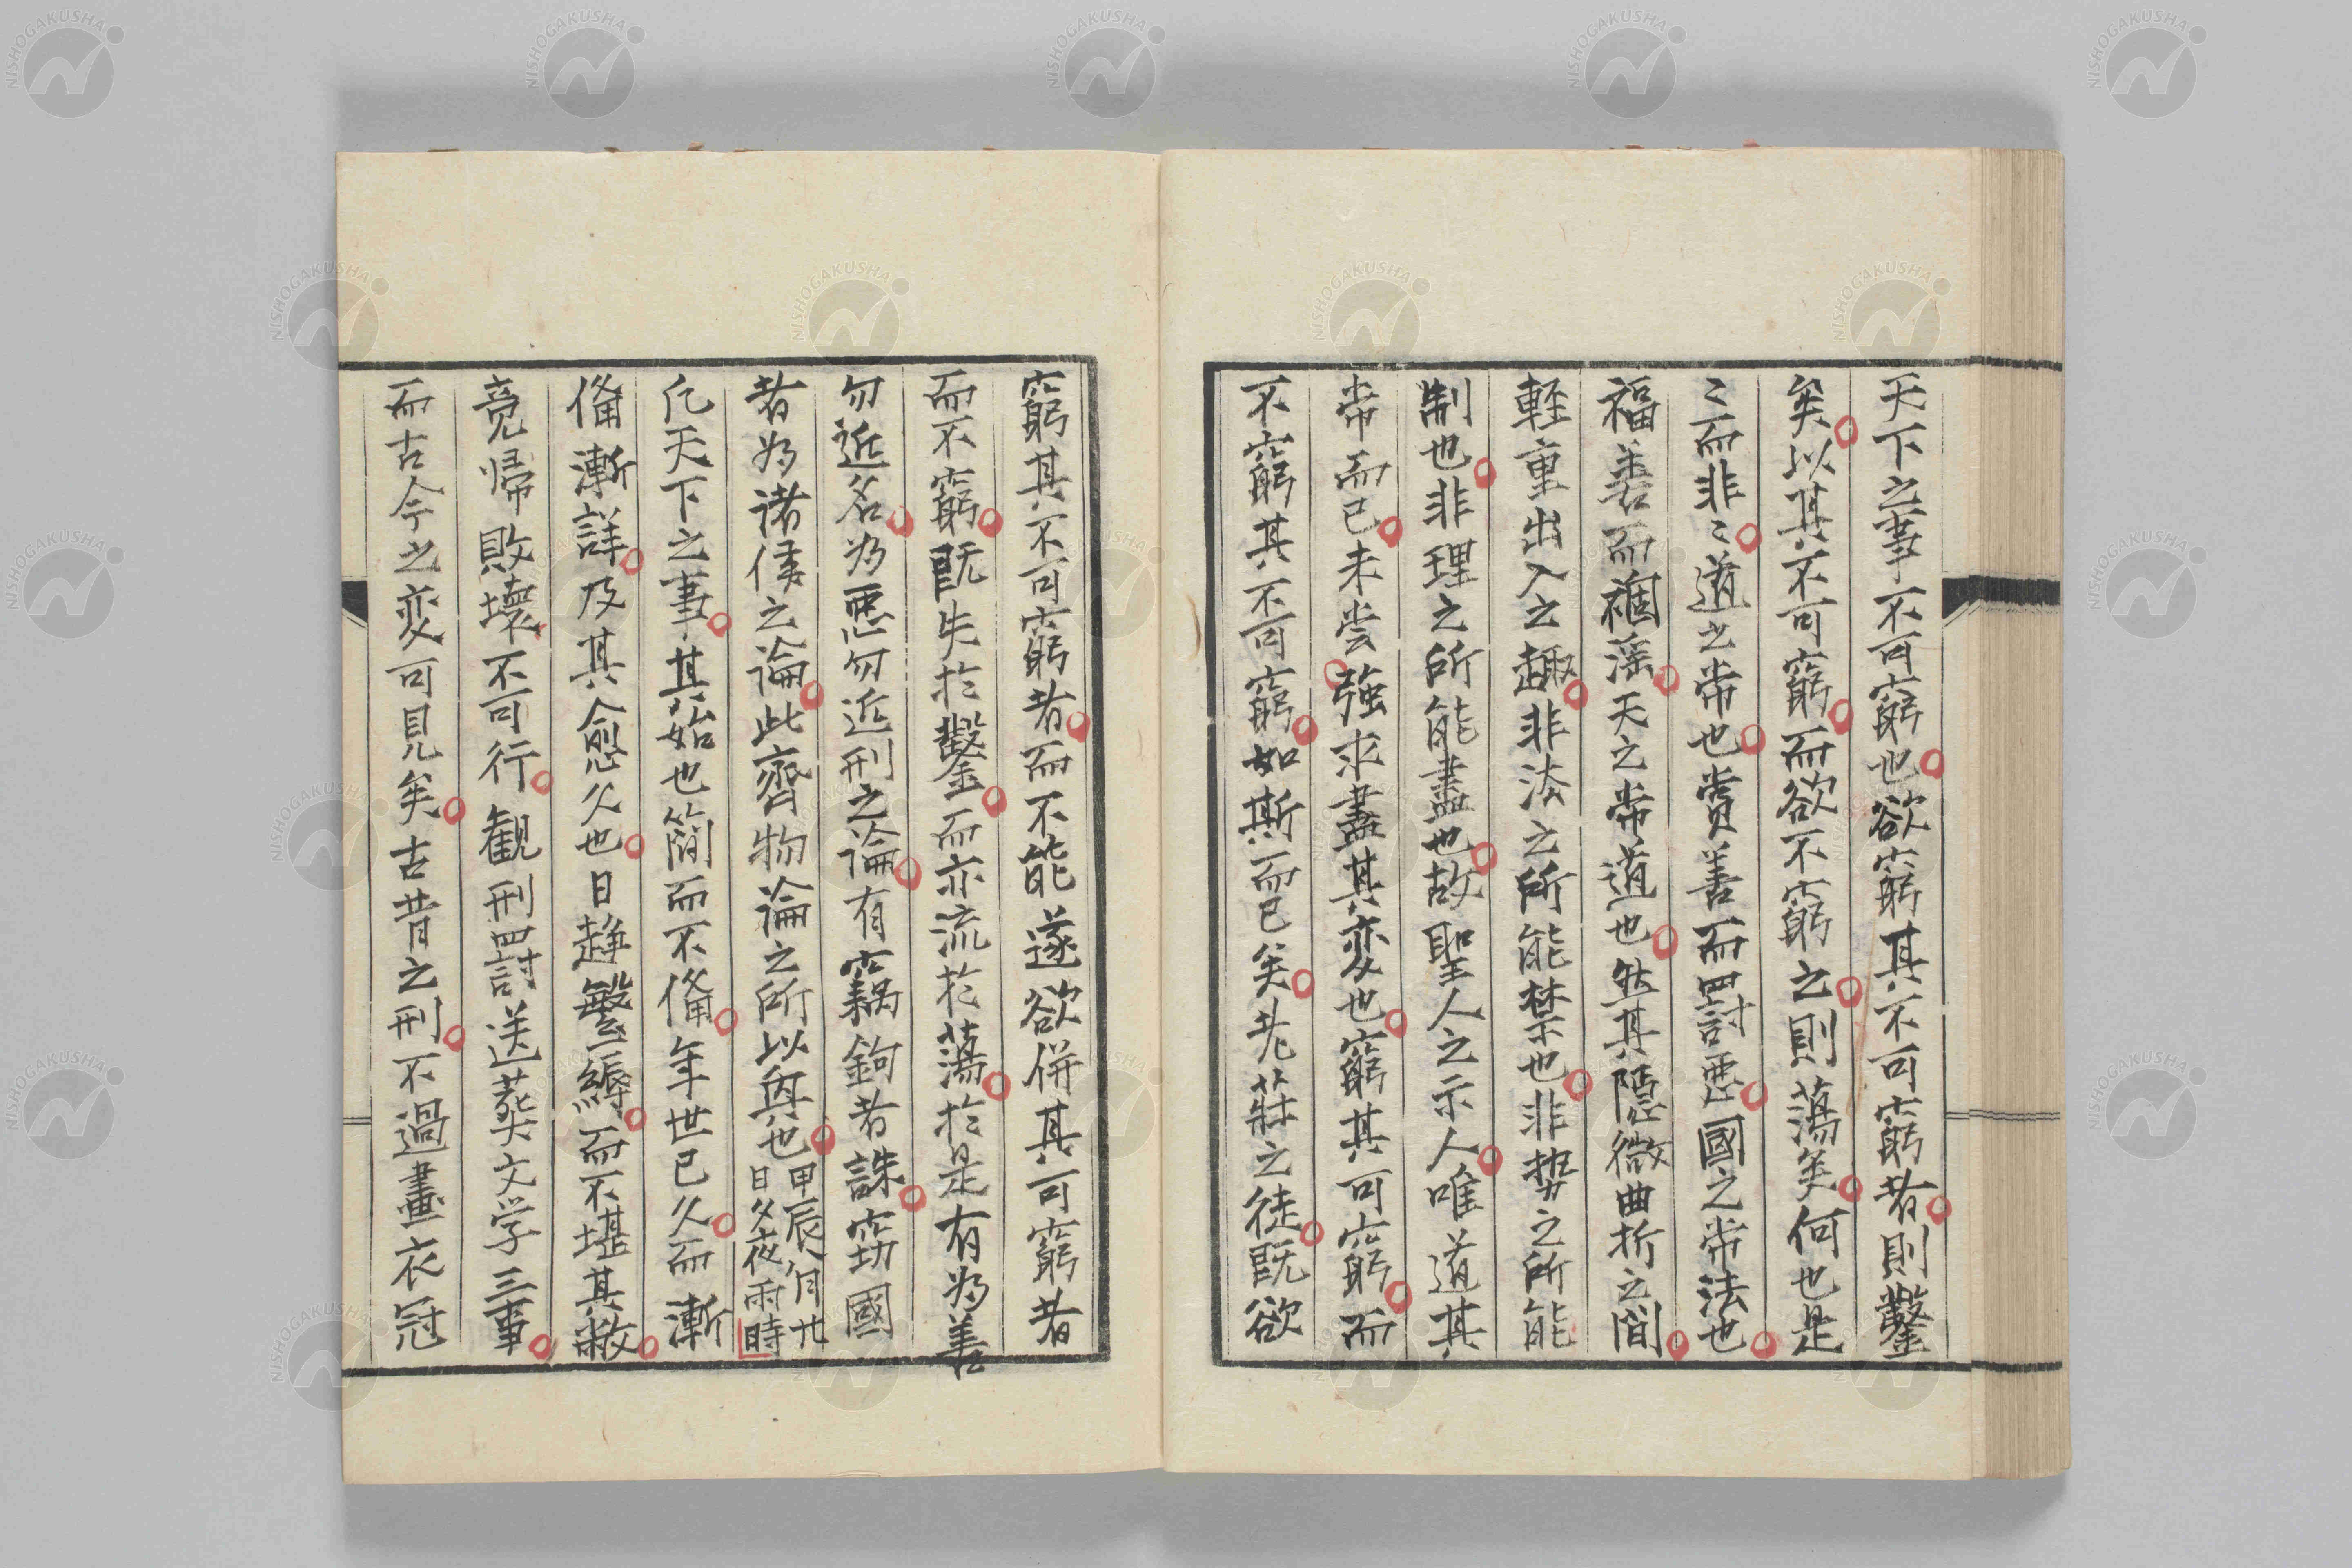 天下之事不可窮也欲窮其不可窮者則鑿
矣以其不可窮而欲不窮之則蕩矣何也是
〻而非〻道之常也賞善而罰悪國之常法也
福善而禍淫天之常道也然其隠微曲折之間
軽重出入之趣非法之所能禁也非勢之所能
制也非理之所能盡也故聖人之示人唯道其
常而已未嘗強求盡其変也窮其可窮而
不窮其不可窮如斯而已矣老荘之徒既欲
窮其不可窮者而不能遂欲併其可窮者
而不窮既失於鑿而亦流於蕩於是有為善
勿近名為悪勿近刑之論有竊鉤者誅窃國
者為諸侯之論此齊物論之所以興也
甲辰八月廿
日久夜雨時
凡天下之事其始也簡而不備年世已久而漸
備漸詳及其愈久也日趨繁縟而不堪其敝
竟帰敗壊不可行観刑罰送葬文学三事
而古今之変可見矣古昔之刑不過畫衣冠
NISHOGAKUSHA